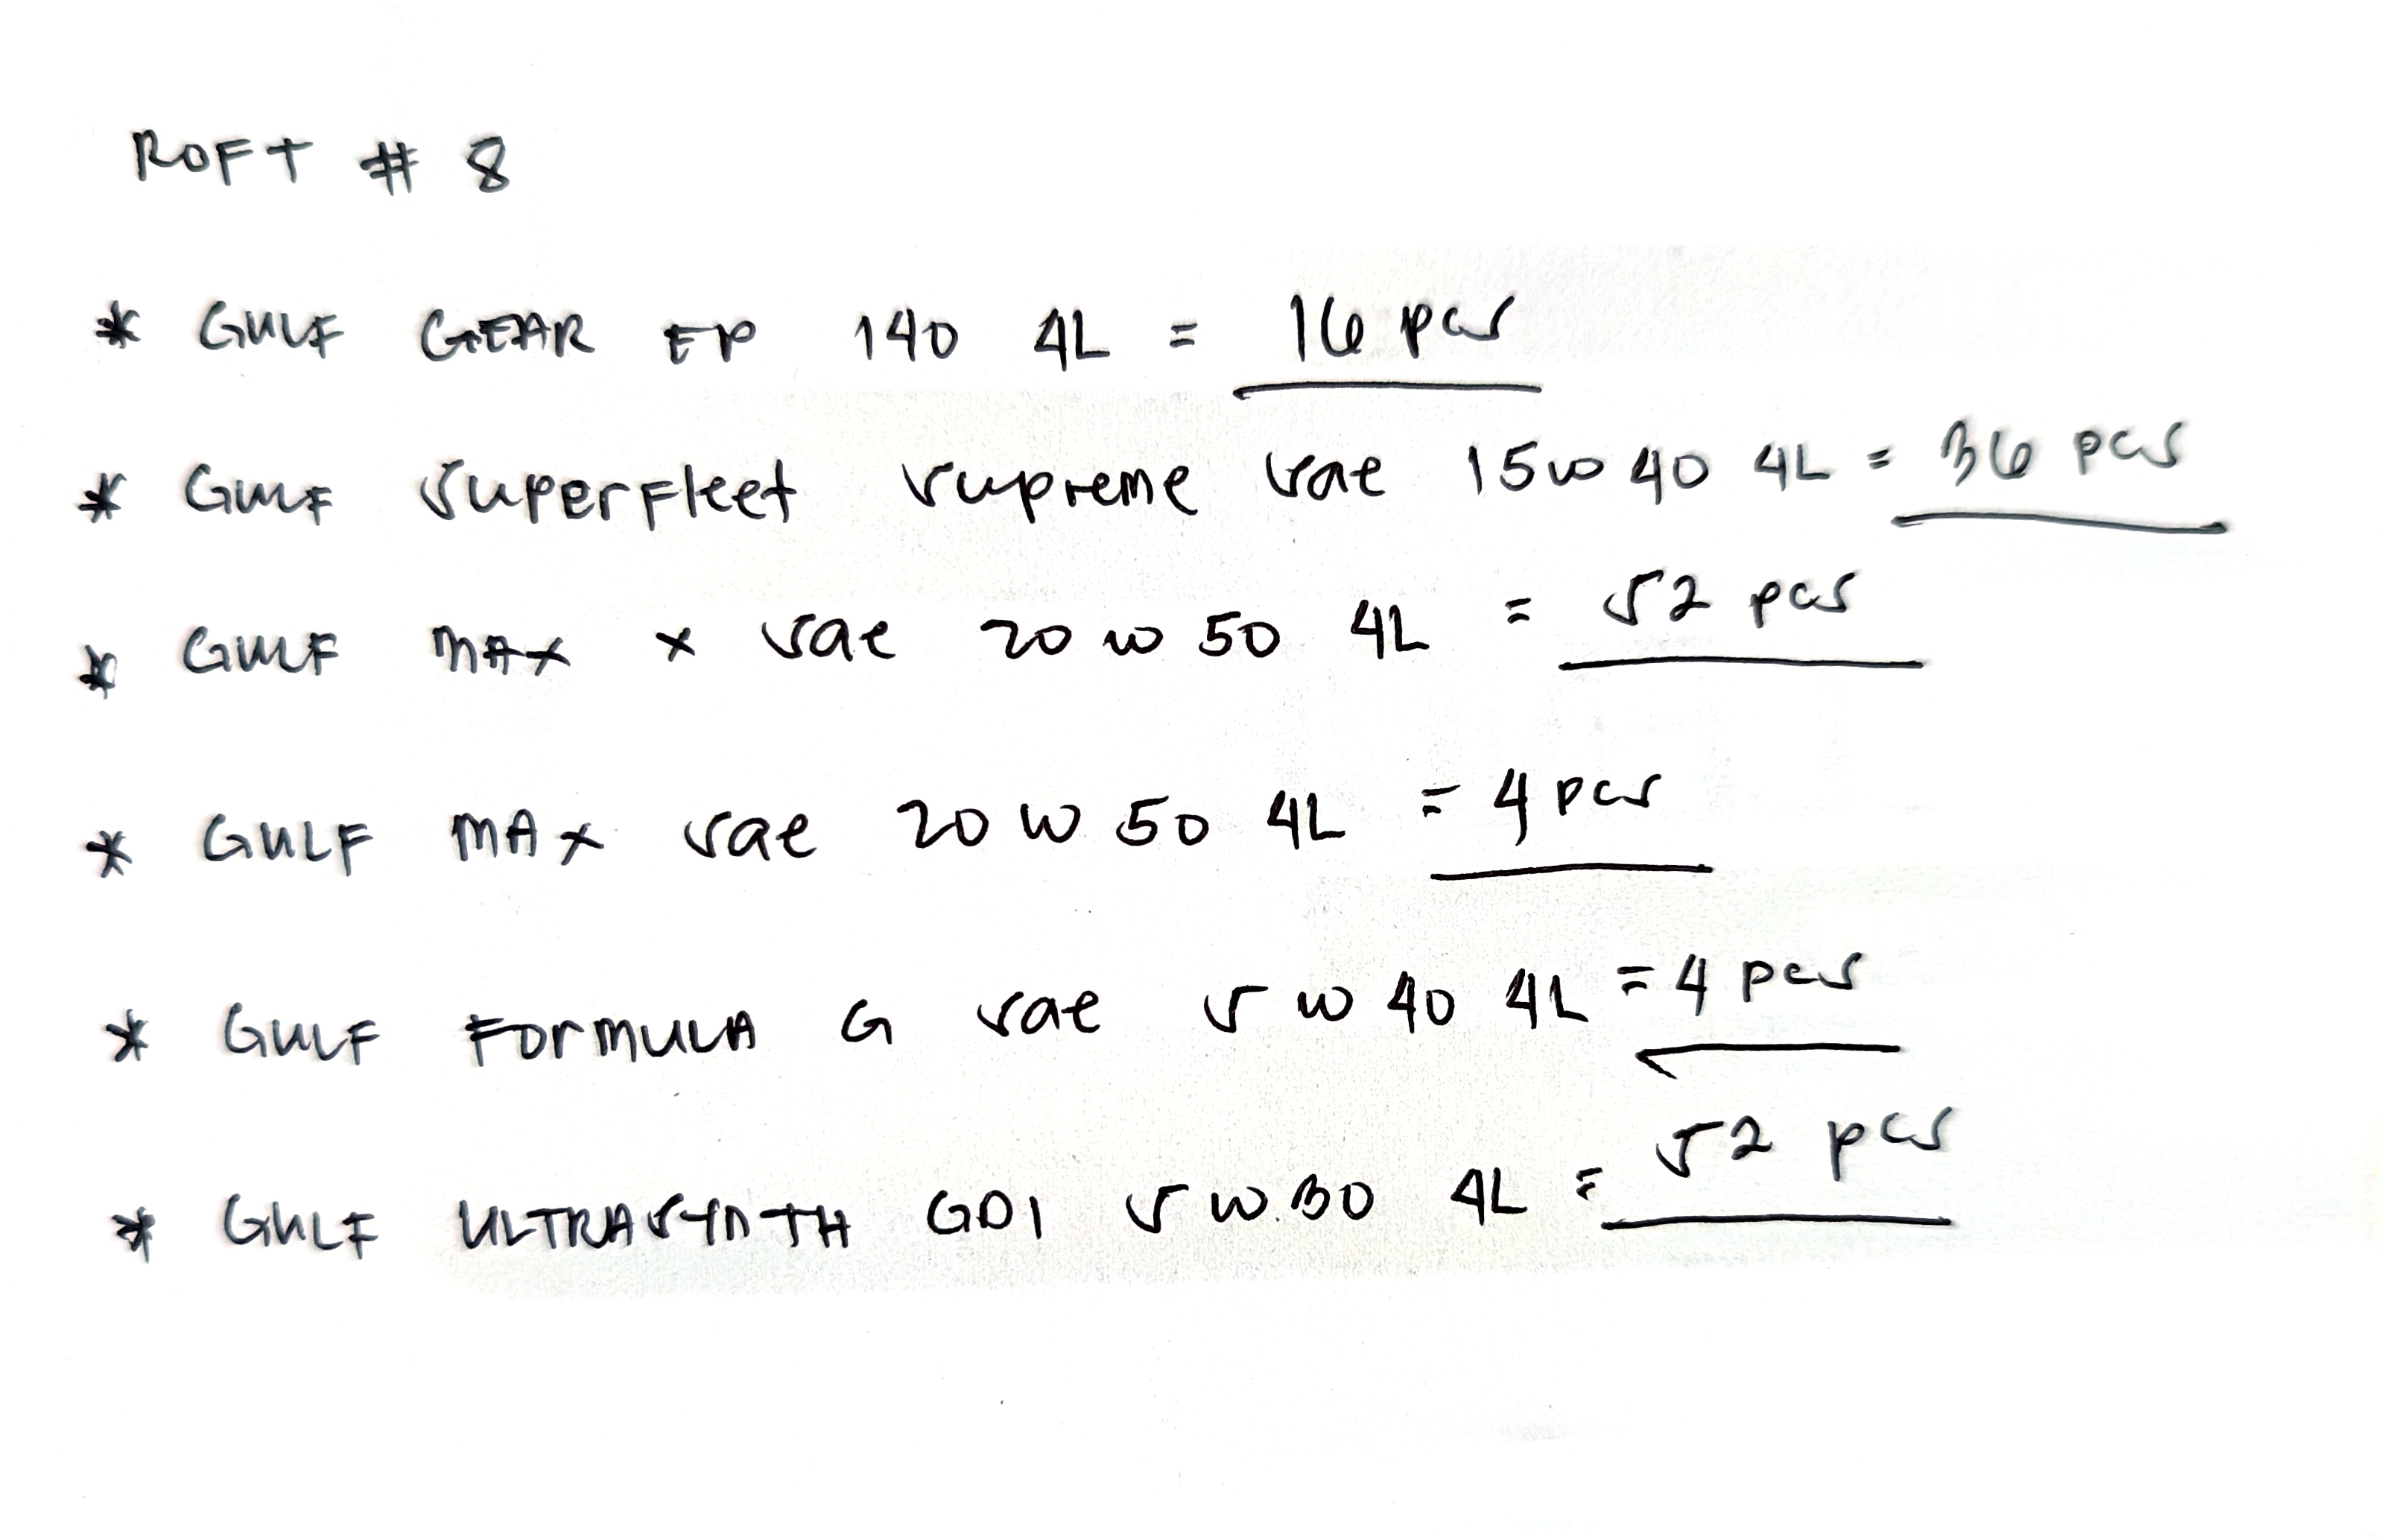 ROFT # 8
* GULF GEAR EP 140 4L = 16 pcs
* GULF SUPERFleet supreme sae 15w 40 4L = 36 pcs
* GULF MAX x sae 20 w 50 4L = 52 pcs
* GULF MAX sae 20 W 50 4L = 4 pcs
* GULF FORMULA G sae 5 w 40 4L = 4 pcs
* GULF ULTRASYNTH GDI 5 w.30 4L = 52 pcs